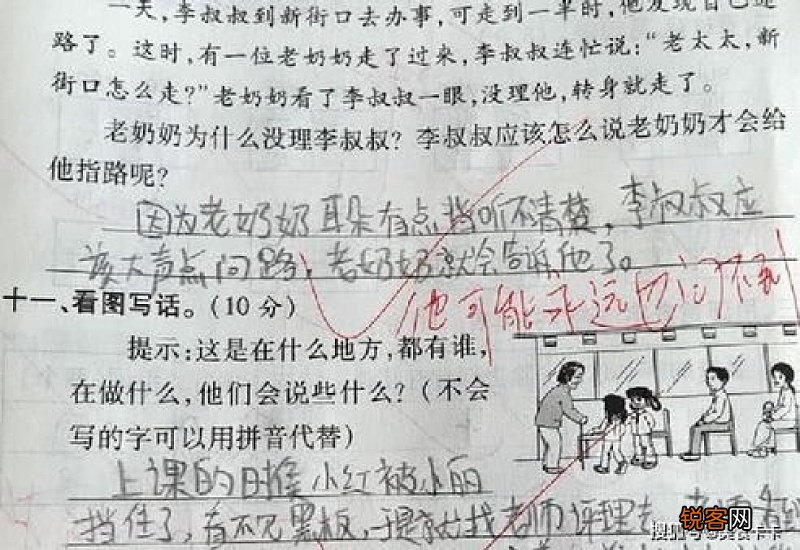 一天，李叔叔到新街口去办事，可走到一半时，他发现自己迷
路了。这时，有一位老奶奶走了过来，李叔叔连忙说：“老太太，新
街口怎么走？”老奶奶看了李叔叔一眼，没理他，转身就走了。
老奶奶为什么没理李叔叔？李叔叔应该怎么说老奶奶才会给
他指路呢？
因为老奶奶耳朵有点挡听不清楚，李叔叔应
该大声点问路，老奶奶就会告诉他了。
他可能永远也问不到
十一、看图写话。（10分）
提示：这是在什么地方，都有谁，
在做什么，他们会说些什么？（不会
写的字可以用拼音代替）
上课的时候小红被小丽
挡住了，看不见黑板，于是就找老师评理去，老师看到
搜狐号@
锐客网